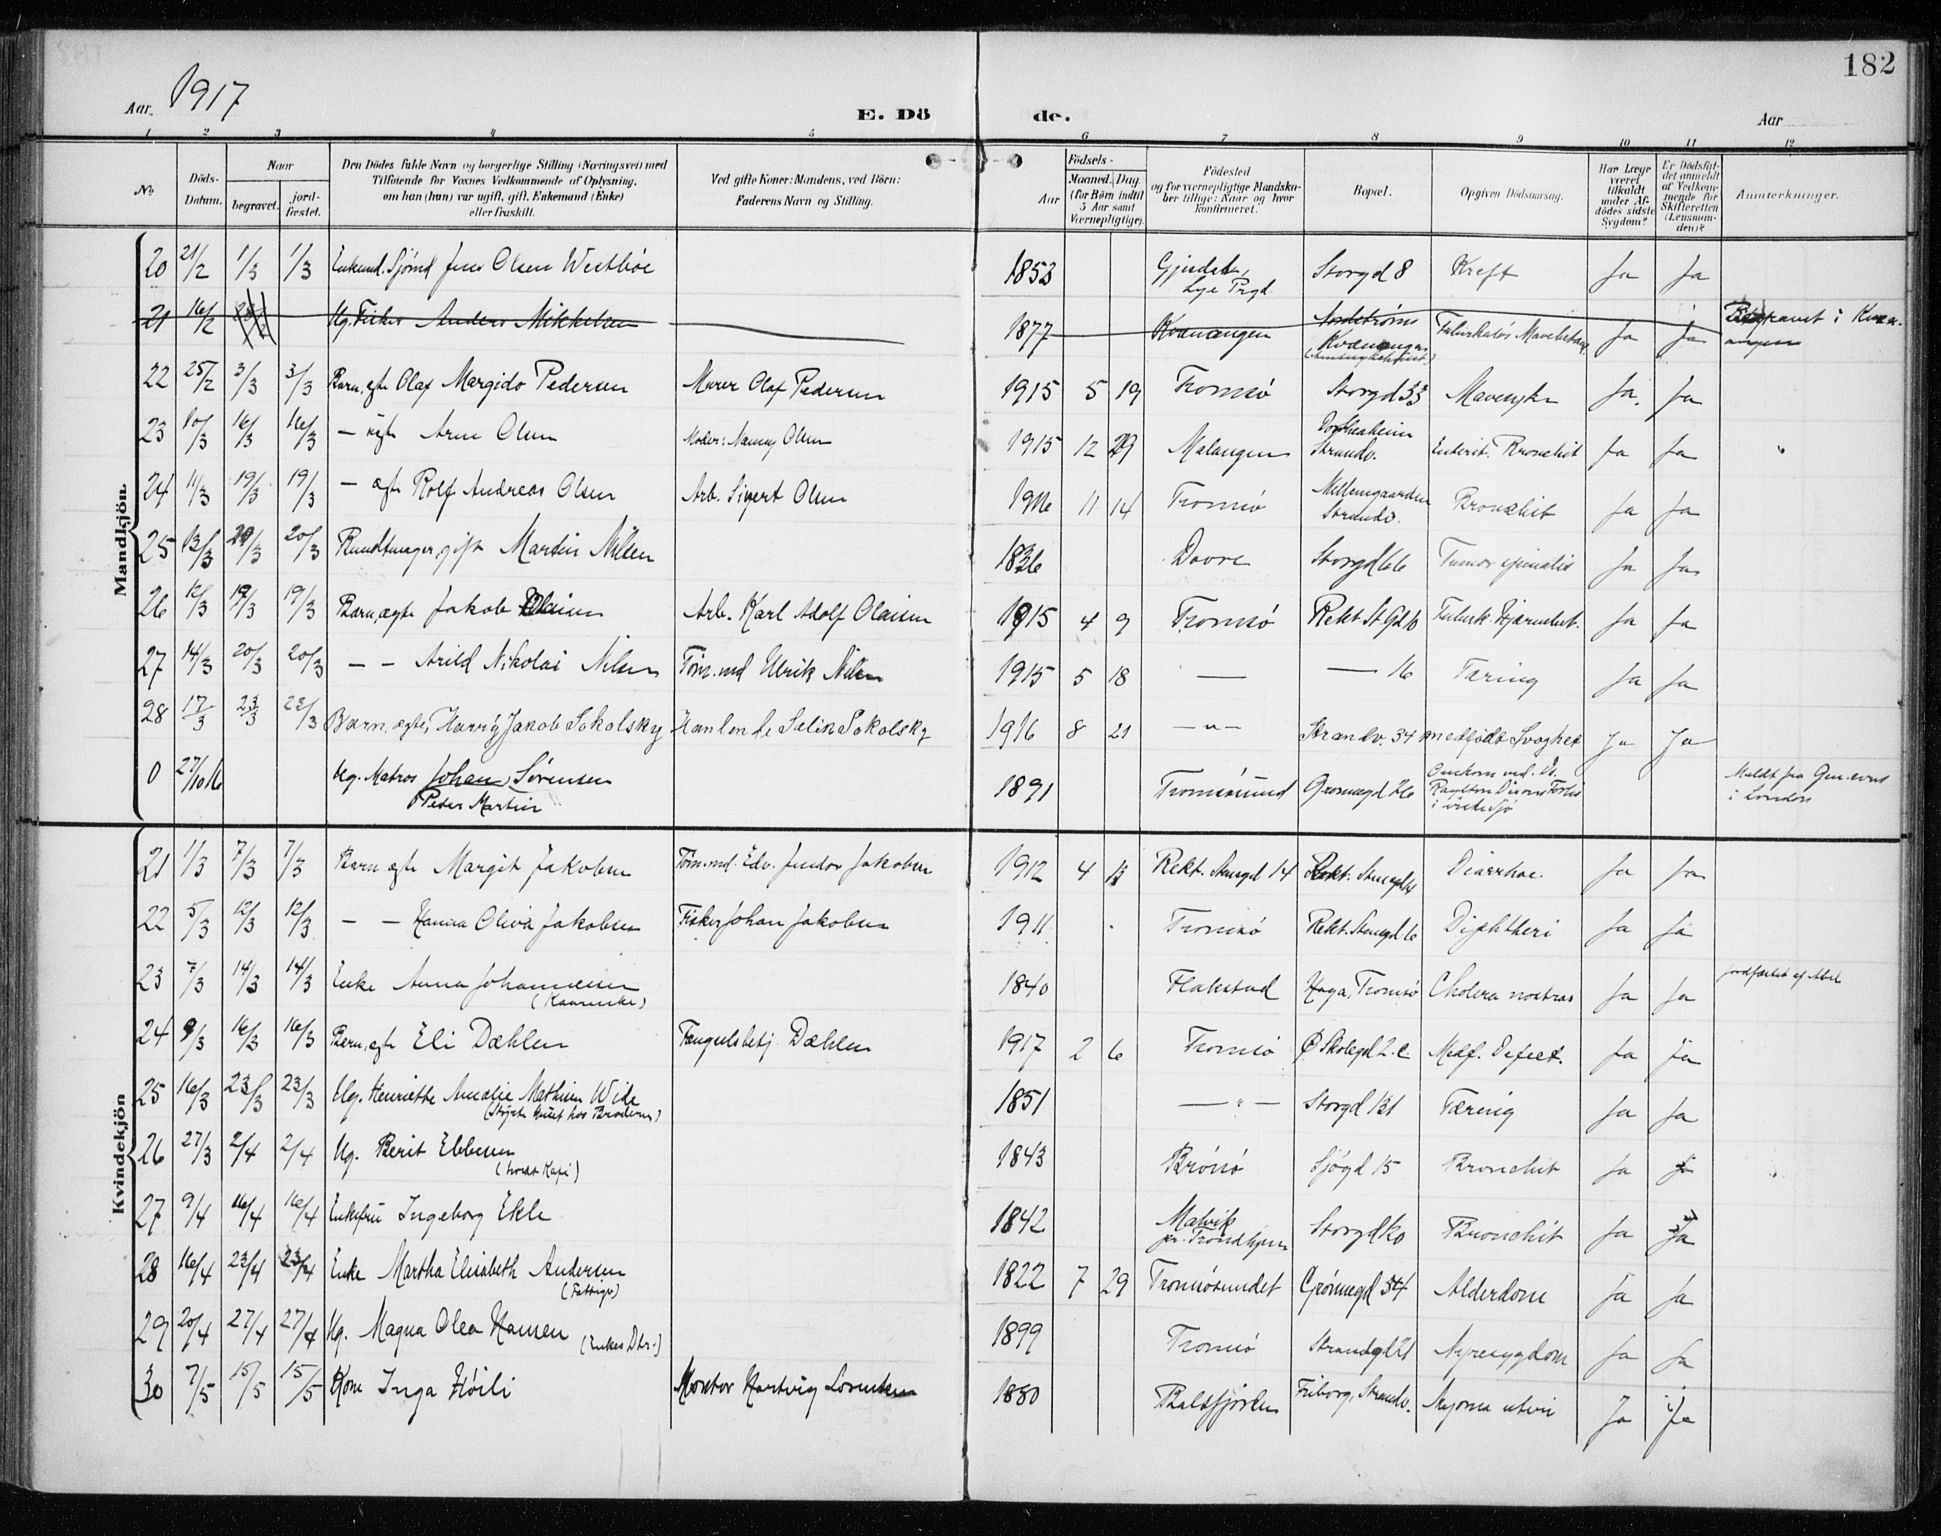 182
Aar 1917
E. Dö de.
Aar
1 2 3 4 5 6 7 8 9 10 11 12
No
Döds-Datum.
Naar
begravet.
jord-fæstet.
Den Dödes fulde Navn og borgerlige Stilling (Næringsvei) med
Tilföiende for Voxnes Vedkommende af Oplysning,
om han (hun) var ugift, gift, Enkemand (Enke)
eller fraskilt.
Ved gifte Koner: Mandens, ved Börn:
Faderens Navn og Stilling.
Födsels-
Aar
Maaned.
Dag.
(for Börn indtil
5 Aar samt
Værnepligtige).
Födested
og for værnepligtige Mandska-
ber tillige: Naar og hvor
konfirmeret.
Bopæl.
Opgiven Dødsaarsag.
Har Læge
været
tilkaldt
under Af-
dødes sidste
Sygdom?
Er Dödsfal-
det anmeldt
af Vedkom-
mende for
Skifteretten
(Lensman-
den)?
Anmærkninger.
Mandkjön.
20 21/2 1/3 1/3 Enkemd. Sjömd Jens Olsen Westböe 1853 Lye Prgd Storgd 8 Kreft Ja Ja
21 16/2 Ug. Fisker Anders Mikkelsen 1877 Kvænangen Kvænangen Ja Ja
22 25/2 3/3 3/3 Barn, ægte Olaf Margido Pedersen Murer Olaf Pedersen 1915 5 19 Tromsö Storgd 33 Mavesyke Ja. Ja
23 10/3 16/3 16/3 — uægte Arne Olsen Moder: Nanny Olsen 1915 12 29 Malangen Strandv. Enterit. Bronchit Ja Ja
24 11/3 19/3 19/3 — ægte Rolf Andreas Olsen Arb. Sigert Olsen 1916 11 14 Tromsö Mellemgaarden Strandv. Bronchit Ja Ja
25 13/3 20/3 20/3 Bundtmager, gift Martin Nilsen 1836 Dovre Storgd 66 Tumor spinalis Ja Ja
26 12/3 19/3 19/3 Barn, ægte Jakob Olaisen Arb. Karl Adolf Olaisen 1915 4 9 Tromsö Rekt. St Gd 16 Ja Ja
27 14/3 20/3 20/3 — — Arild Nikolai Nilsen Töm.md Ulrik Nilsen 1915 5 18 — — 16 Tæring Ja Ja
28 17/3 23/3 23/3 Barn, ægte, Harry Jakob Sokolsky Handlende Selik Sokolsky 1916 8 21 — " — Strandv. 34 medfödt Svaghet Ja Ja
0 27/10 16 Ug. Matros Johan Sörensen
Peder Martin 1891 Tromsösund Grönnegd 26 Omkom ved Ds.
i Ishavet
i London
Kvindekjön
21 1/3 7/3 7/3 Barn ægte Margit Jakobsen Töm.md. Edv. Jakobsen 1912 4 Rekt. Stengd 14 Rekt. Stengd Diarrhoe. Ja Ja
22 5/3 12/3 12/3 — — Hanna Oliva Jakobsen Fisker Johan Jakobsen 1911 Tromsö Rekt. Stengd 16 Diphtheri Ja Ja
23 7/3 14/3 14/3 Enke Anna Johannesen 1840 Flakstad Haga, Tromsö Cholera nostras Ja Ja jordfæstet af Abel
24 9/3 16/3 16/3 Barn, ægte Eli Dæhlen Fængselsbetj. Dæhlen 1917 2 6 Tromsö Ø Skolegd 2. c. Medf. Defect. Ja Ja
25 16/3 23/3 23/3 Ug. Henriette Amalie Mathisen Wide
(Styrte Huset hos Broderen) 1851 — " — Storgd 131 Tæring Ja Ja
26 27/3 2/4 2/4 Ug. Berit Ebbesen 1843 Brönö Sjögd 15 Bronchit Ja Ja
27 9/4 16/4 16/4 Enkefru Ingeborg Ekle 1842 Malvik
pr. Trondhjem Storgd Bronchit Ja Ja
28 16/4 23/4 23/4 Enke Martha Elisabeth Andersen
(Fattigv) 1822 7 29 Tromsösundet Grönnegd 34 Alderdom Ja Ja
29 20/4 27/4 27/4 Ug. Magna Olea Hansen (Enkes Dtr.) 1899 Tromsö Strandgd 21 Nyresygdom Ja Ja
30 7/5 15/5 15/5 Kone Inga Höili Montör Hartvig Lorentsen 1880 Balsfjorden Friborg, Strandv. Myoma uteri Ja Ja